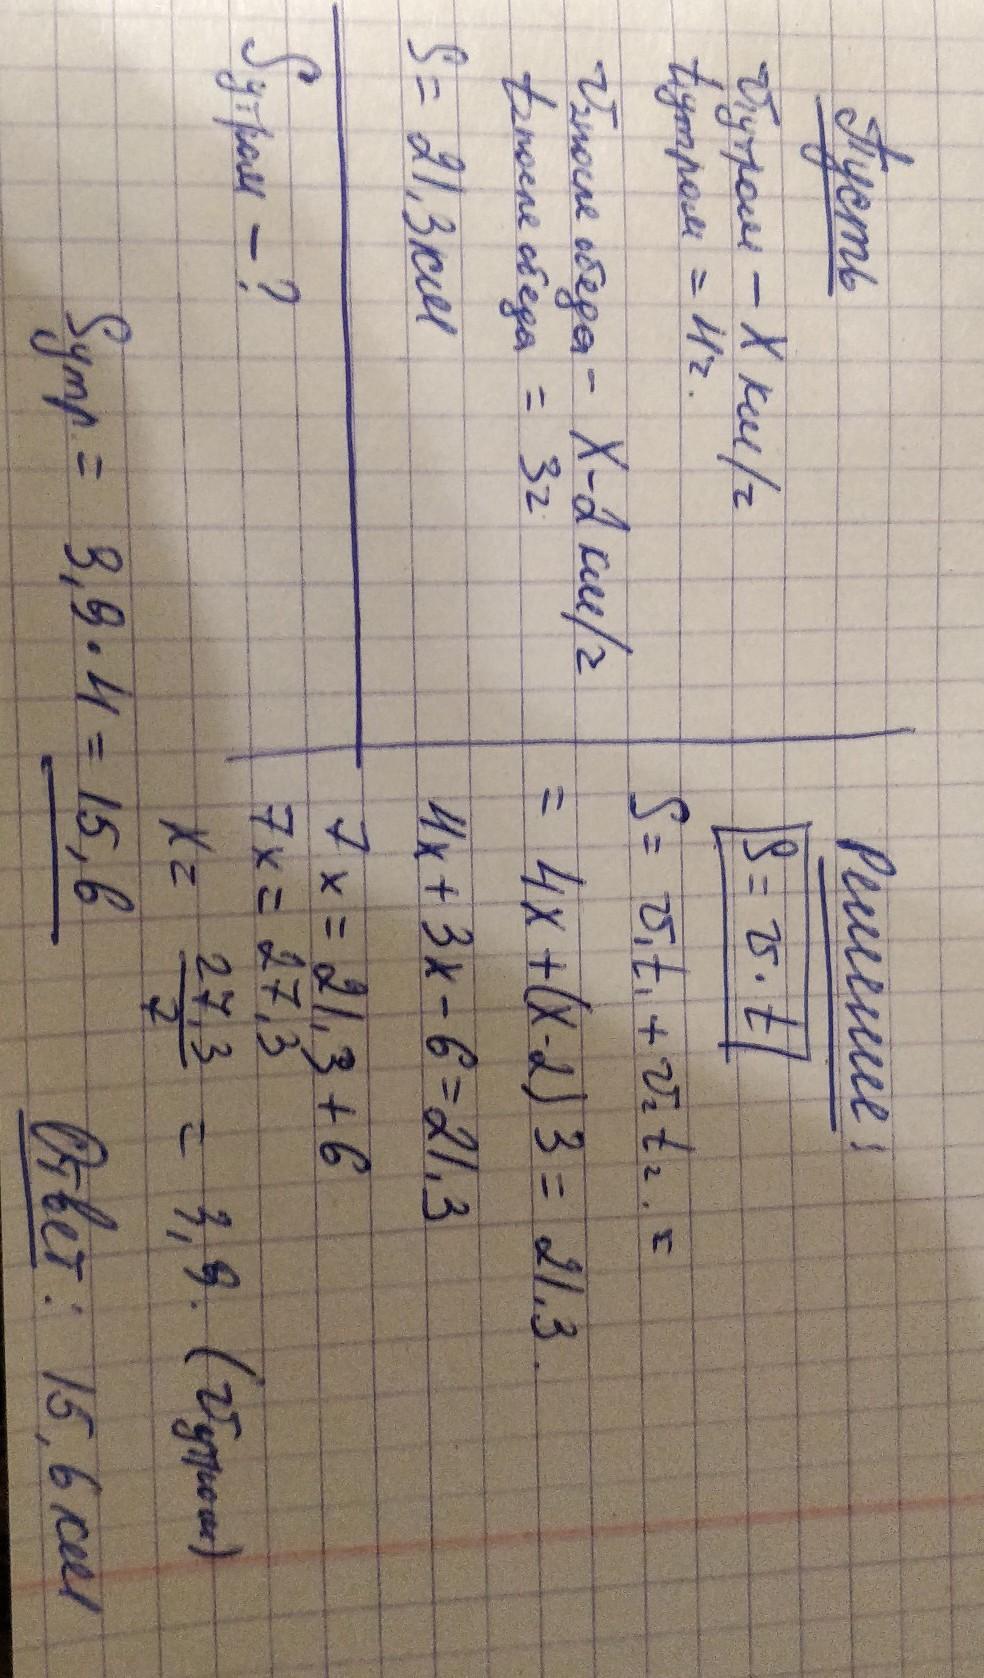 Пусть
V₁утром – x км/ч
t₁утром = 4ч.
V₂после обеда – x-2 км/ч
t₂после обеда = 3ч.
S = 21,3км
Sутром – ?
Решение:
S = v · t
S = v₁t₁ + v₂t₂. =
= 4x + (x-2) 3 = 21,3.
4x + 3x - 6 = 21,3
7x = 21,3 + 6
7x = 27,3
x = 27,3/7 = 3,9. (Vутром)
Sутр. = 3,9 · 4 = 15,6
Ответ: 15,6 км